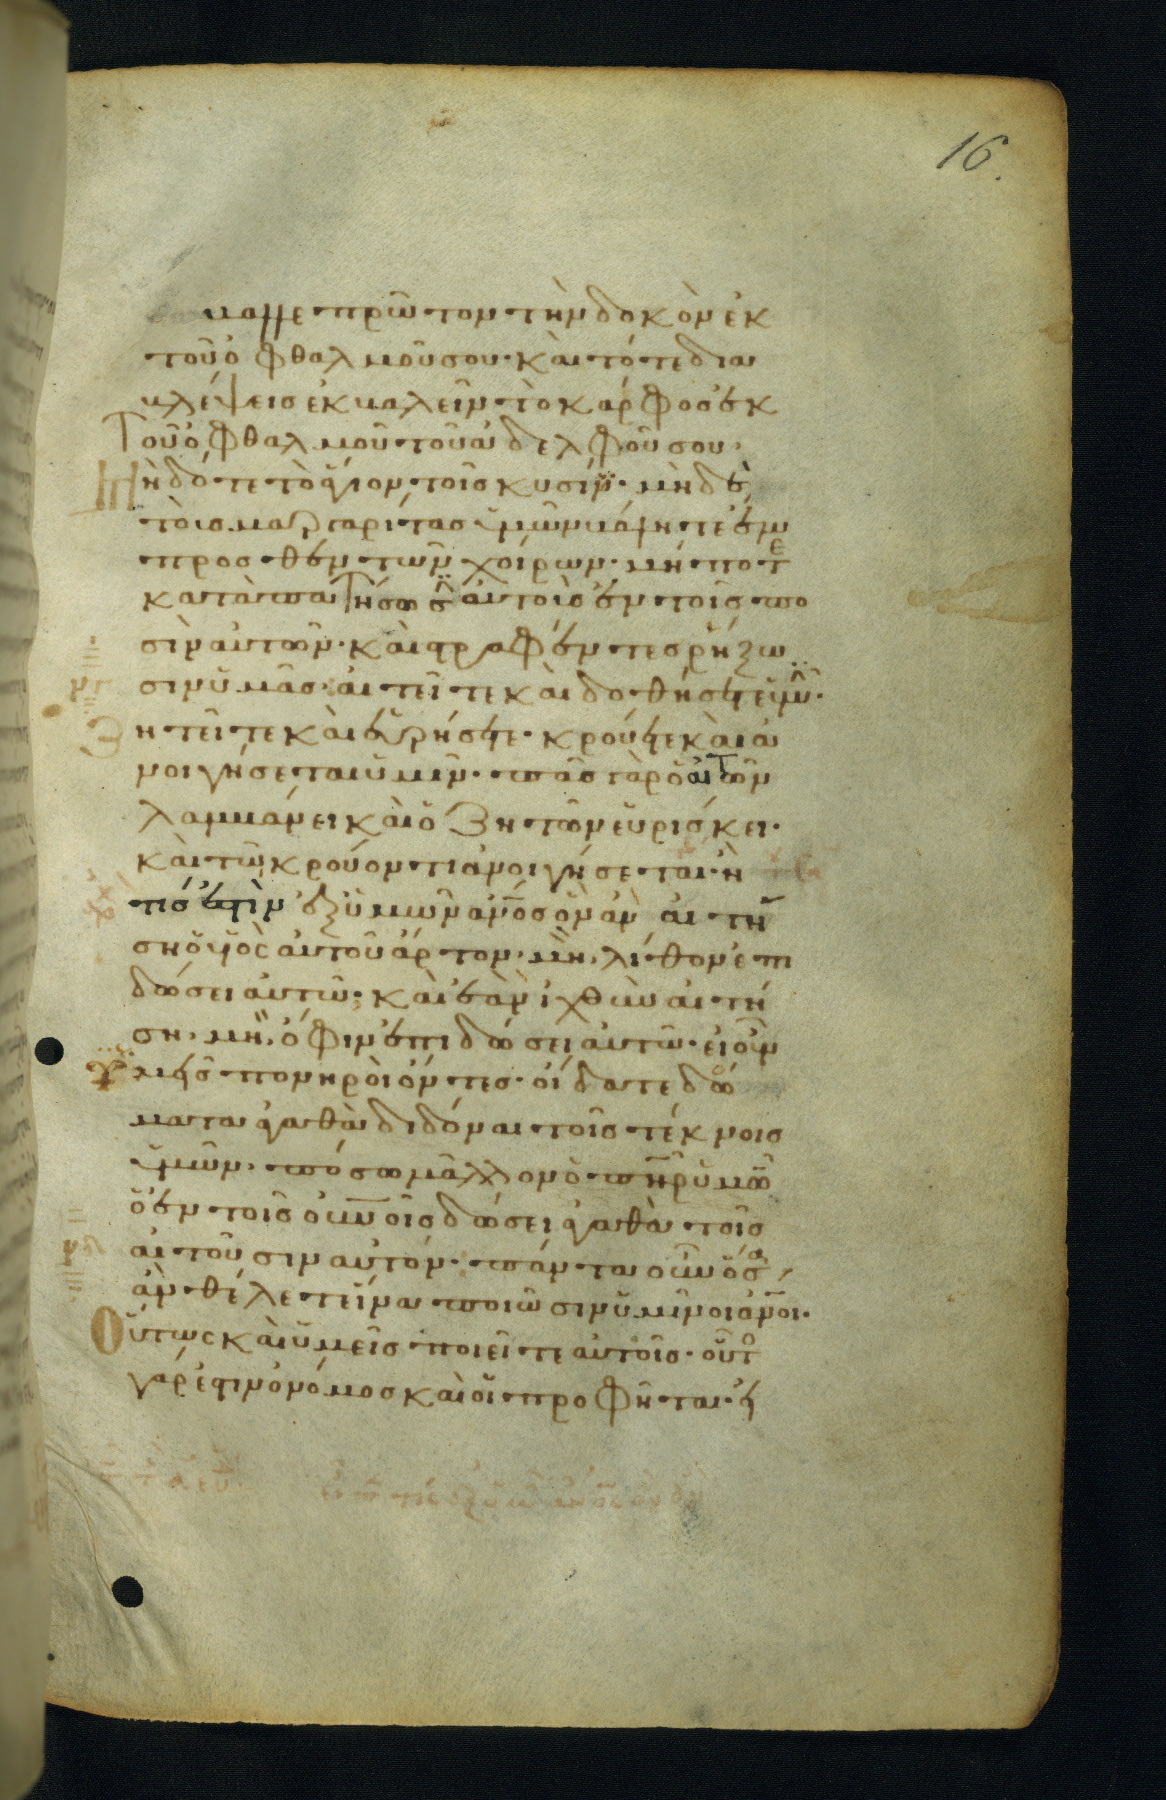 16.
βαλλε πρῶτον τὴν δοκὸν ἐκ
τοῦ ὀφθαλμοῦ σου· καὶ τότε δια
βλέψεις ἐκβαλεῖν τὸ κάρφος ἐκ
τοῦ ὀφθαλμοῦ τοῦ ἀδελφοῦ σου·
Μὴ δότε τὸ ἅγιον τοῖς κυσίν· μὴδὲ
τοὶς μαργαρίτας ὑμῶν βάλητε ἐμ
προσθεν τῶν χοίρων· μήποτε
καταπατήσωσιν αὐτοὶς ἐν τοῖς πο
σὶν αὐτῶν· καὶ στραφέντες ῥήξω
σιν ὑμᾶς· αἰτεῖτε καὶ δοθήσεται ὑμῖν·
Ζητεῖτε καὶ εὑρήσετε· κρούετε καὶ ἀ
νοιγήσεται ὑμῖν· πᾶς γὰρ ὁ αἰτῶν
λαμβάνει καὶ ὁ ζητῶν εὑρίσκει·
καὶ τῶ κρούοντι ἀνοιγήσεται· ἢ
τίς ἐστὶν ἐξ ὑμῶν ἀνος ὃν ἂν αἰτή
ση ὁ υἱὸς αὐτοῦ ἄρτον· μὴ λίθον ἐπι
δώσει αὐτῶ· καὶ ἐὰν ἰχθὺν αἰτή
ση· μὴ ὄφιν ἐπιδώσει αὐτῶ· εἰ οὖν
ὑμεῖς πονηροὶ ὄντες· οἴδατε δό
ματα ἀγαθὰ διδόναι τοῖς τέκνοις
ὑμῶν· πόσω μᾶλλον ὁ πηρ ὑμῶν
ὁ ἐν τοῖς οὐνοις δώσει ἀγαθὰ τοῖς
αἰτοῦσιν αὐτόν· πάντα οὖν ὅσα
ἂν θέλετε ἵνα ποιῶσιν ὑμῖν οἱ ἀνοι·
Οὕτως καὶ ὑμεῖς ποιεῖτε αὐτοῖς· οὗτος
γάρ ἐστιν ὁ νόμος καὶ οἱ προφῆται· εἰ